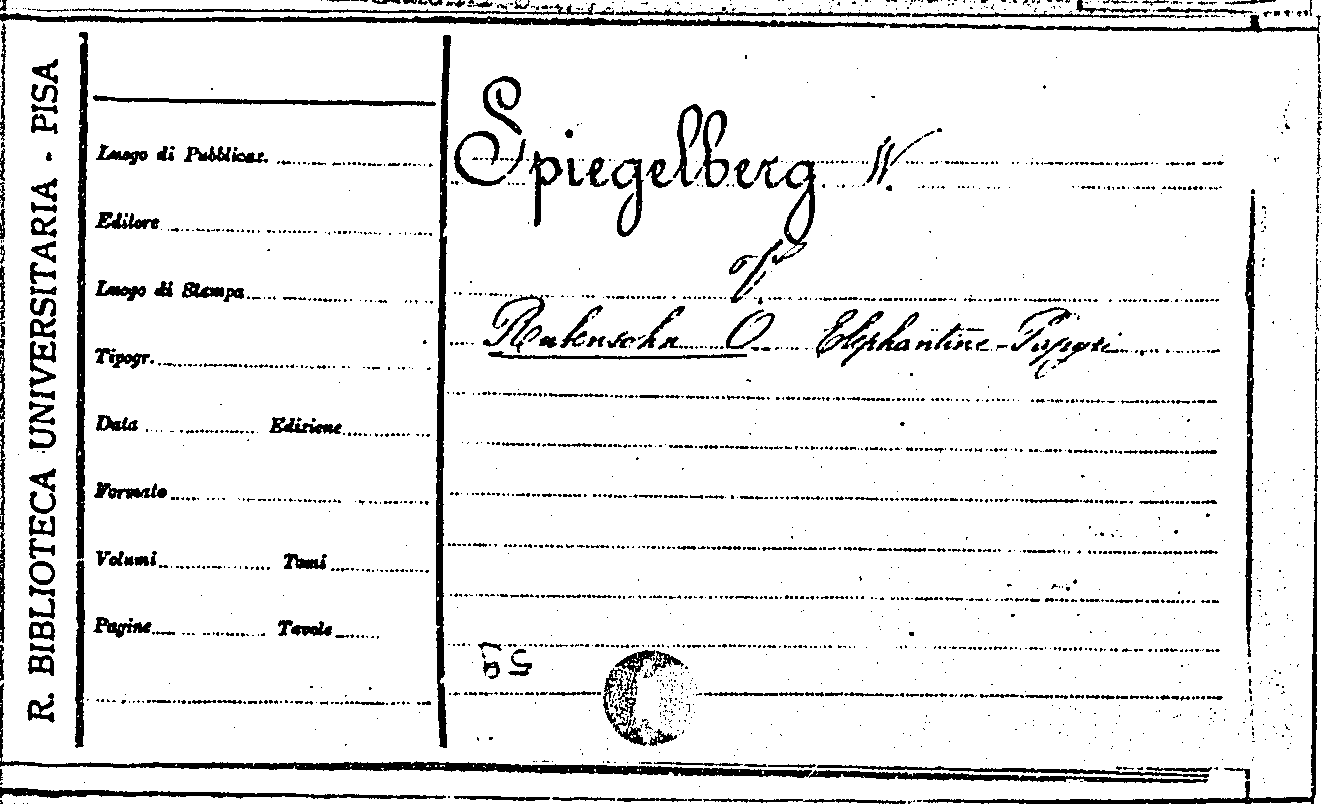 R. BIBLIOTECA UNIVERSITARIA - PISA
Luogo di Pubblicaz.
Editore
Luogo di Stampa
Tipogr.
Data Edizione
Formato
Volumi Tomi
Pagine Tavole
Spiegelberg W.
V.
Rubensohn O. Elephantine-Papyri